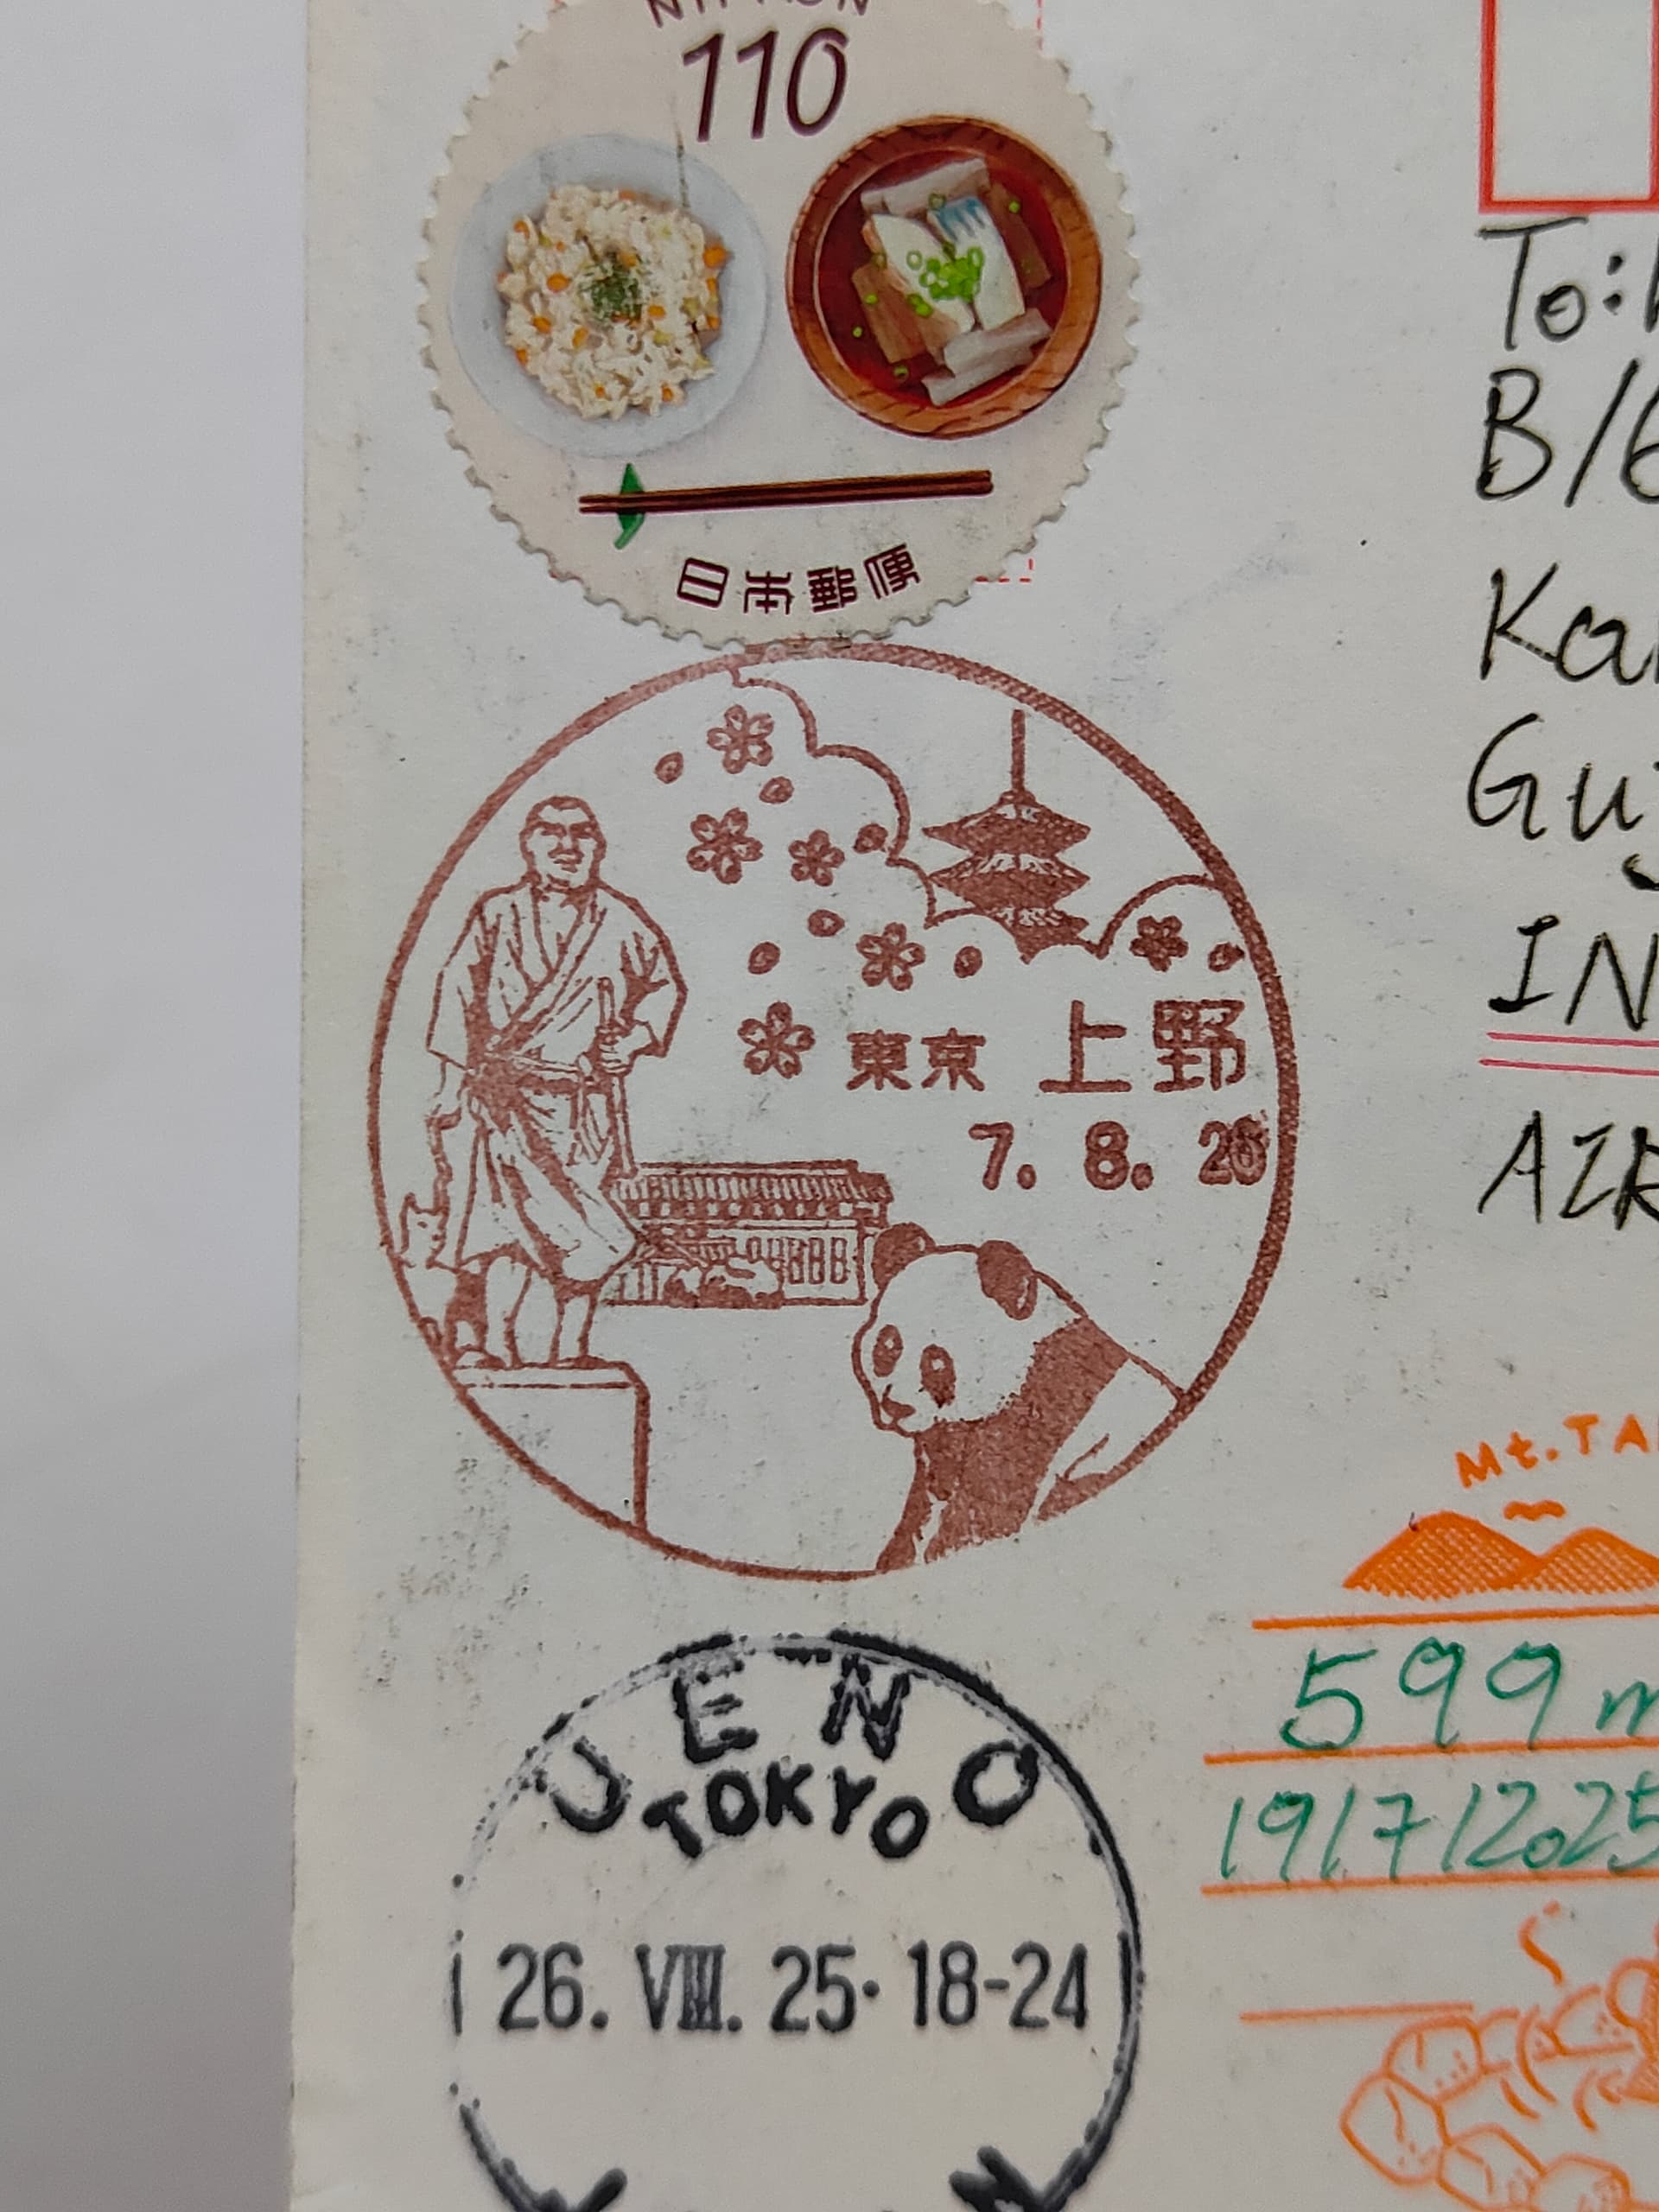 NIPPON
110
日本郵便
To:
B/6
Ka
Gu
IN
AIR
東京 上野
7. 8. 26
Mt. TA
599m
19/7/2025
UENO
TOKYO
26. VIII. 25· 18-24